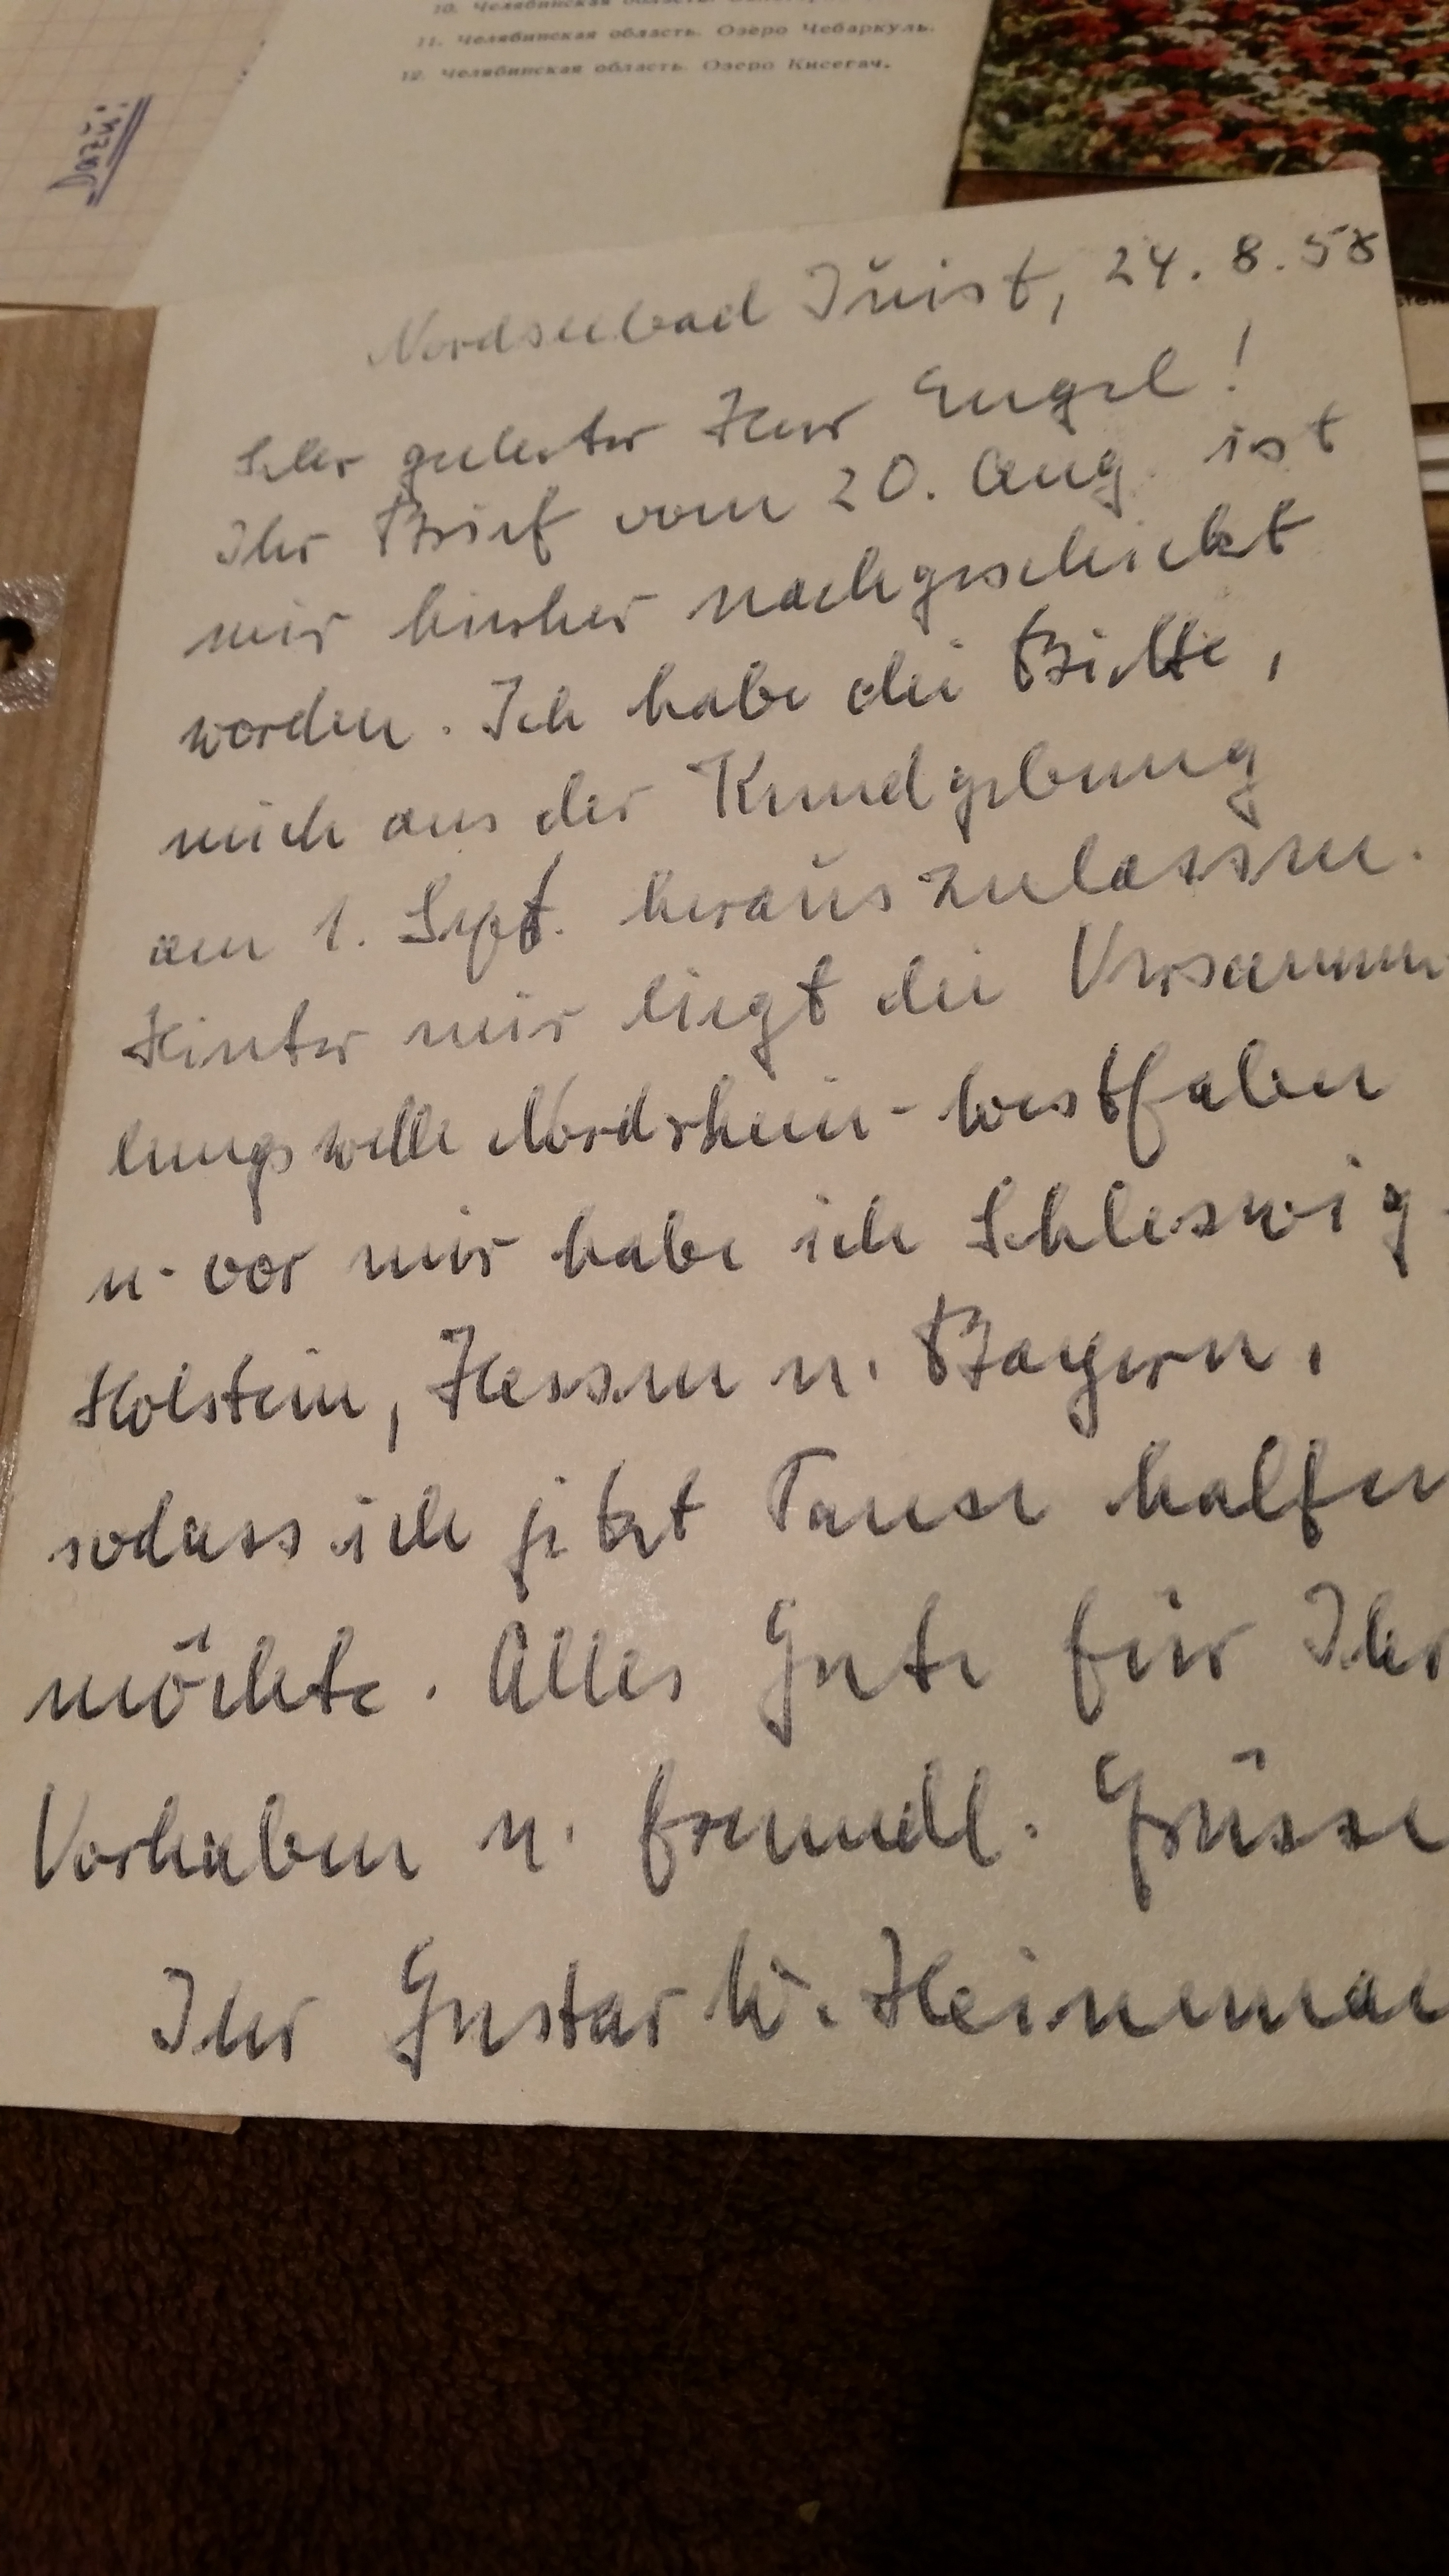 11. Челябинская область. Озеро Чебаркуль.
12. Челябинская область. Озеро Кисегач.
Dazu:
Nordseebad Juist, 24. 8. 58
Sehr geehrter Herr Engel!
Ihr Brief vom 20. Aug. ist
mir hierher nachgeschickt
worden. Ich habe die Bitte,
mich aus der Kundgebung
am 1. Sept. herauszulassen.
Hinter mir liegt die Versamm
lungswelle Nordrhein-Westfalen
u. vor mir habe ich Schleswig-
Holstein, Hessen u. Bayern,
sodass ich jetzt Pause halten
möchte. Alles Gute für Ihr
Vorhaben u. freundl. Grüsse
Ihr Gustav W. Heineman